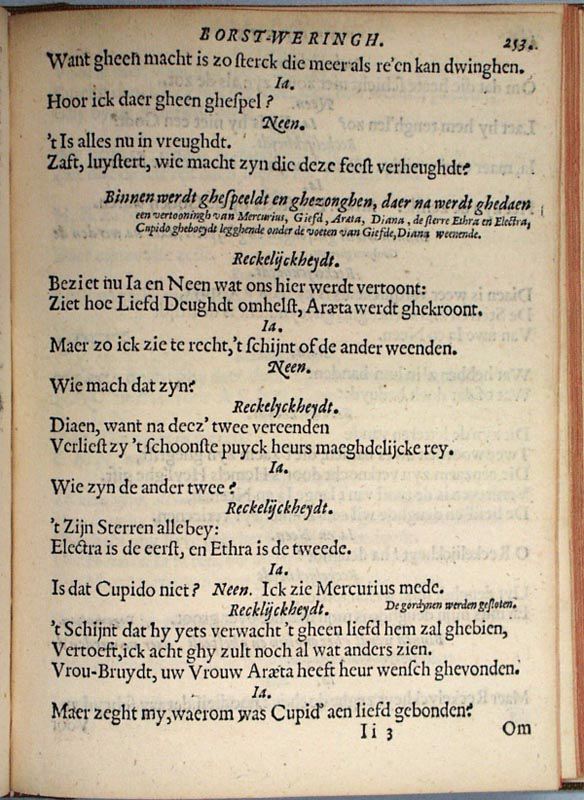 BORST-WERINGH.
253.
Want gheen macht is zo sterck die meer als re'en kan dwinghen.
Ia.
Hoor ick daer gheen ghespel?
Neen.
't Is alles nu in vreughdt.
Zaft, luystert, wie macht zyn die deze feest verheughdt?
Binnen werdt ghespeeldt en ghezonghen, daer na werdt ghedaen
een vertooningh van Mercurius, Giefd, Aræta, Diana, de sterre Ethra en Electra,
Cupido gheboeydt legghende onder de voeten van Giefde, Diana weenende.
Reckelijckheydt.
Beziet nu Ia en Neen wat ons hier werdt vertoont:
Ziet hoe Liefd Deughdt omhelst, Aræta werdt ghekroont.
Ia.
Maer zo ick zie te recht, 't schijnt of de ander weenden.
Neen.
Wie mach dat zyn?
Reckelyckheydt.
Diaen, want na deez' twee vereenden
Verliest zy 't schoonste puyck heurs maeghdelijcke rey.
Ia.
Wie zyn de ander twee?
Reckelijckheydt.
't Zijn Sterren alle bey:
Electra is de eerst, en Ethra is de tweede.
Ia.
Is dat Cupido niet? Neen. Ick zie Mercurius mede.
Recklijckheydt. De gordynen werden gesloten.
't Schijnt dat hy yets verwacht 't gheen liefd hem zal ghebien,
Vertoeft, ick acht ghy zult noch al wat anders zien.
Vrou-Bruydt, uw Vrouw Aræta heeft heur wensch ghevonden.
Ia.
Maer zeght my, waerom was Cupid' aen liefd gebonden?
Ii 3
Om